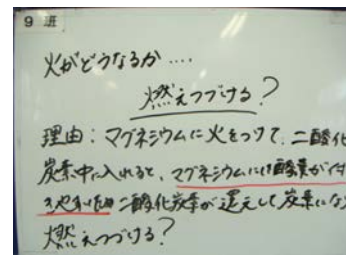 9 班
火がどうなるか‥‥
燃えつづける?
理由:マグネシウムに火をつけて、二酸化
炭素中に入れると、マグネシウムには酸素が付
きやすいため二酸化炭素が還元して炭素にな
燃えつづける?